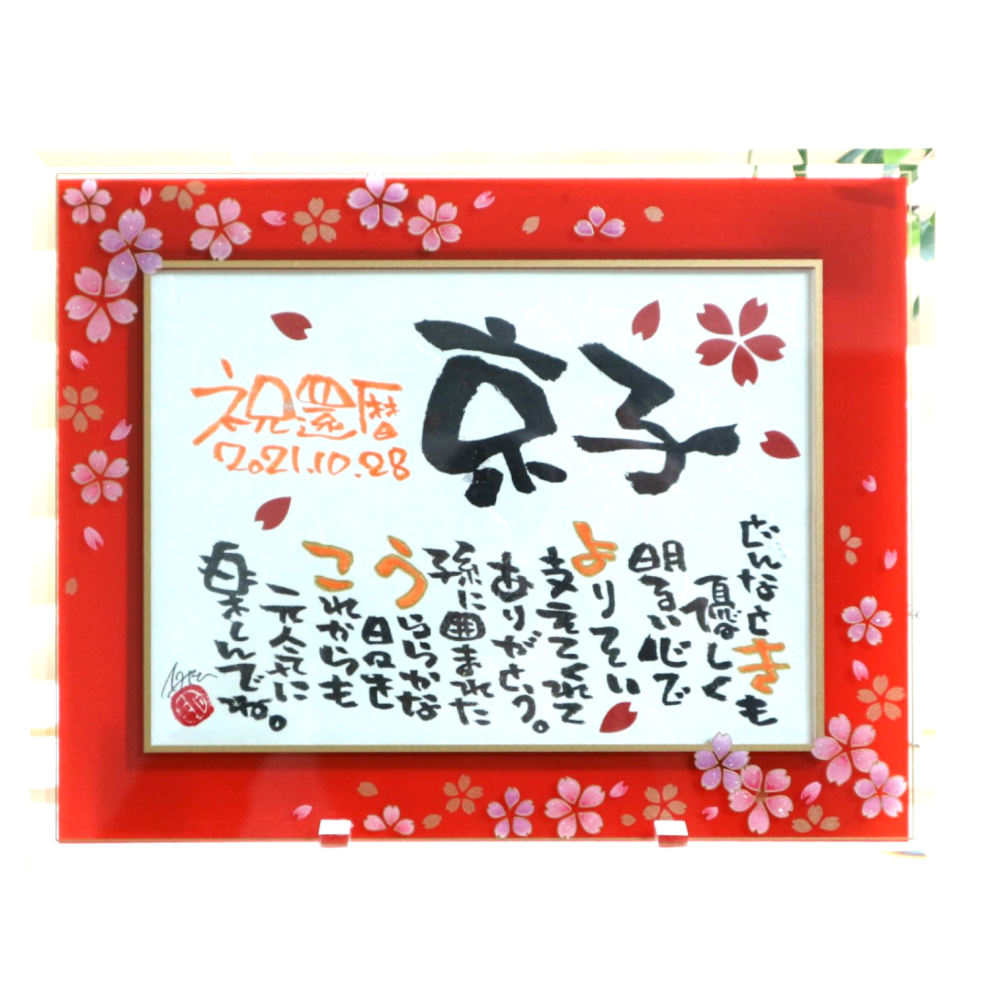 京子
祝還暦
2021.10.28
どんなときも
優しく
明るい心で
よりそい
支えてくれて
ありがとう。
孫に囲まれた
うららかな
日々を
これからも
元気に
楽しんでね。